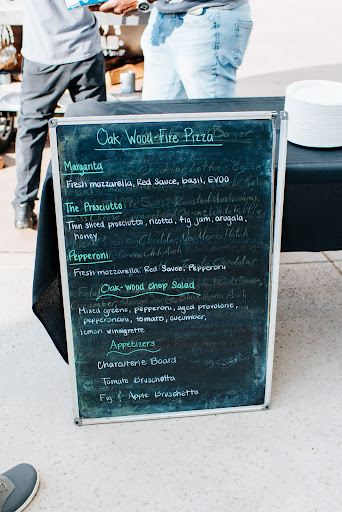 Oak Wood-Fire Pizza
Margarita
Fresh mozzarella, Red Sauce, basil, EVOO
The Prosciutto
Thin sliced prosciutto, ricotta, fig jam, arugala,
honey
Pepperoni
Fresh mozzarella, Red Sauce, Pepperoni
Oak-wood chop Salad
Mixed greens, pepperoni, aged provolone,
pepperoncini, tomato, cucumber,
lemon vinaigrette
Appetizers
Charcuterie Board
Tomato Bruschetta
Fig & Apple Bruschetta